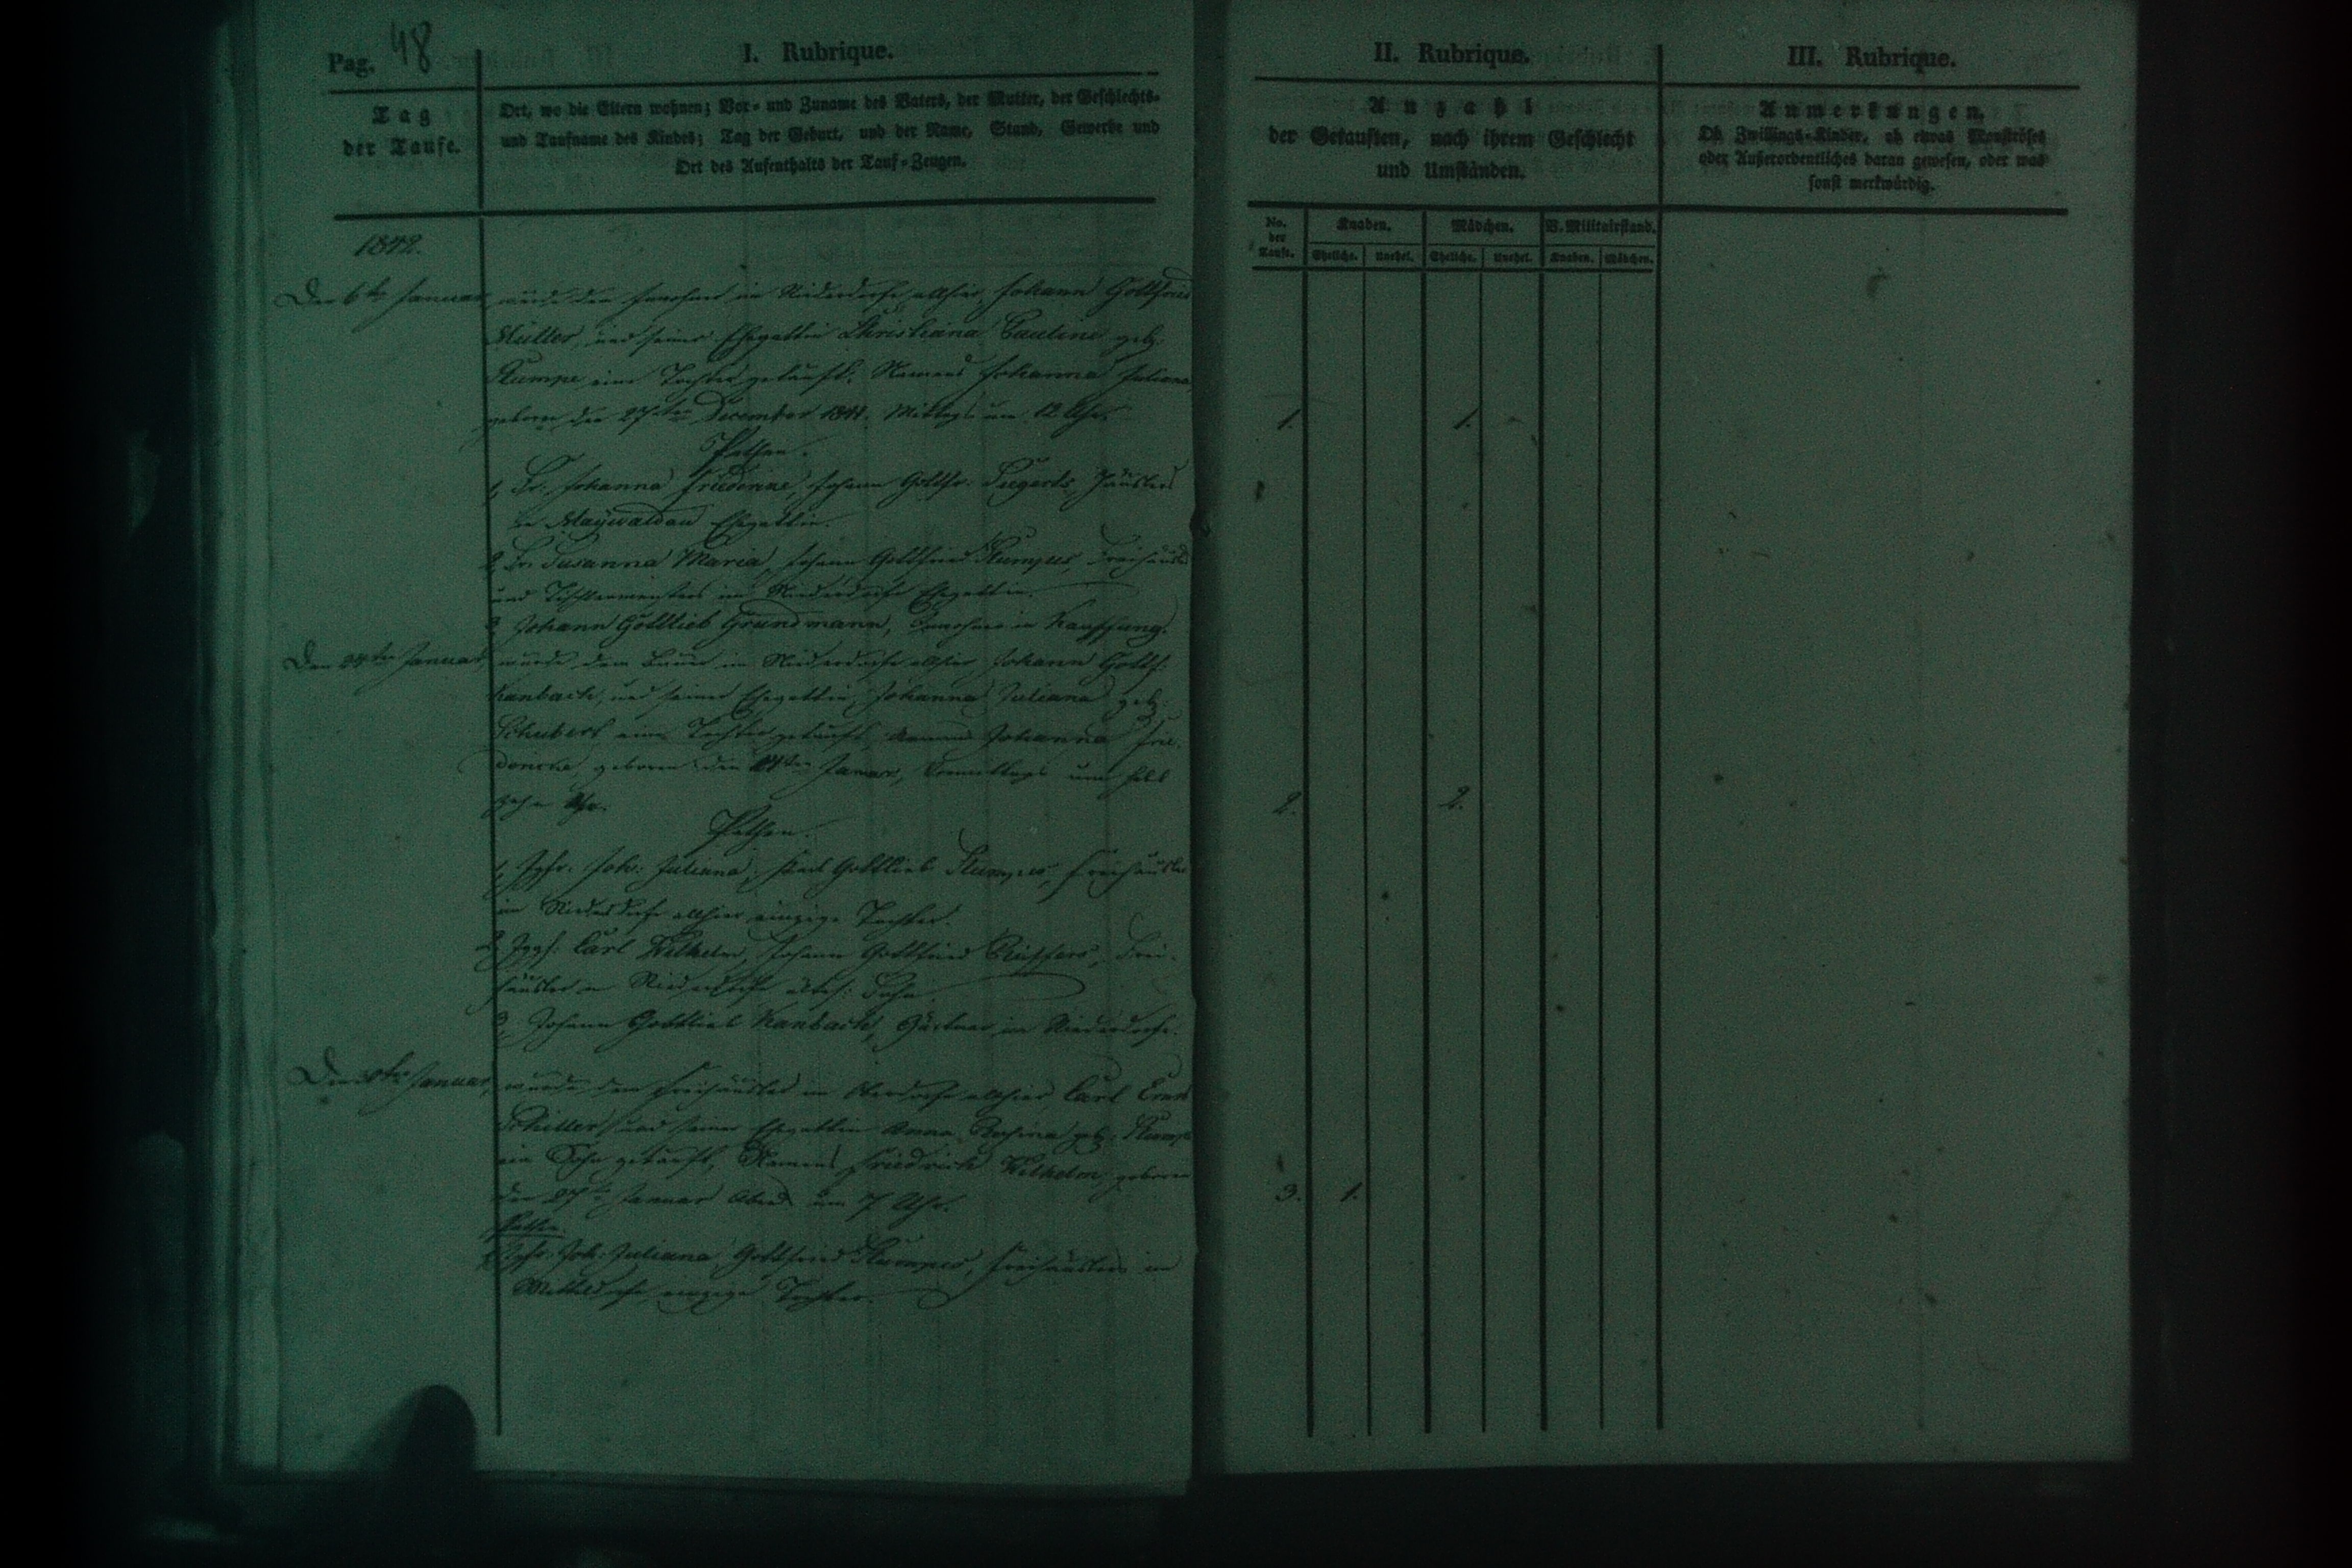 Pag. 48
I. Rubrique.
Tag
der Taufe.
Ort, wo die Eltern wohnen; Vor- und Zuname des Vaters, der Mutter, der Geschlechts-
und Taufname des Kindes; Tag der Geburt, und der Name, Stand, Gewerbe und
Ort des Aufenthalts der Tauf-Zeugen.
1842.
Den 6ten Januar
wurde dem Inwohner im Niederdorfe allhier, Johann Gottfried
Müller, und seiner Ehegattin Christiana Pauline geb.
Stumpe eine Tochter getauft, Namens Johanna Juliana
geboren den 27ten December 1841. Mittags um 12 Uhr.
Pathen.
1, Fr. Johanna Friederike, Johann Gottfr. Häuslers
in Maywaldau Ehegattin.
2, Fr. Susanna Maria, Johann Gottfried Stumpes, Freihäusl.
und Tischlermeisters im Niederdorfe Ehegattin.
3, Johann Gottlieb Grundmann, Inwohner in Kauffung.
Den Januar
wurde dem Bauer im Niederdorfe allhier Johann Gottf.
Kanbach, und seiner Ehegattin, Johanna Juliana geb.
Schubert eine Tochter getauft, Namens Johanna Frie-
geboren den Januar, Vormittags um halb
zehn Uhr.
Pathen.
1, Jgfr. Joh: Juliana, Karl Gottlieb Stumpes, Freihäusler
im Niederdorfe allhier einzige Tochter.
2, Jgges. Carl Wilhelm, Johann Gottfried Frei-
häusler in Niederdorfe ältest. Sohn.
3, Johann Gottlieb Kanbach, Gärtner im Niederdorfe.
Den Januar
wurde dem Freihäusler im Oberdorfe allhier, Carl Ernst
Schiller und seiner Ehegattin Anna Rosina geb. Stumpe
ein Sohn getauft, Namens Friedrich Wilhelm, geboren
den 27ten Januar Abends um 7 Uhr.
Pathen.
1, Jgfr. Joh: Juliana Gottfried Stumpes, Freihäuslers im
Mitteldorfe, einzige Tochter.
II. Rubrique.
Anzahl
der Getauften, nach ihrem Geschlecht
und Umständen.
No. der Taufe.
Knaben. Mädchen. V. Militairstand.
Eheliche. Unehel. Eheliche. Unehel. Knaben. Mädchen.
1. 1.
2. 2.
3. 1.
III. Rubrique.
Anmerkungen.
Ob Zwillings-Kinder, ob etwas Monströses
oder Außerordentliches daran gewesen, oder was
sonst merkwürdig.